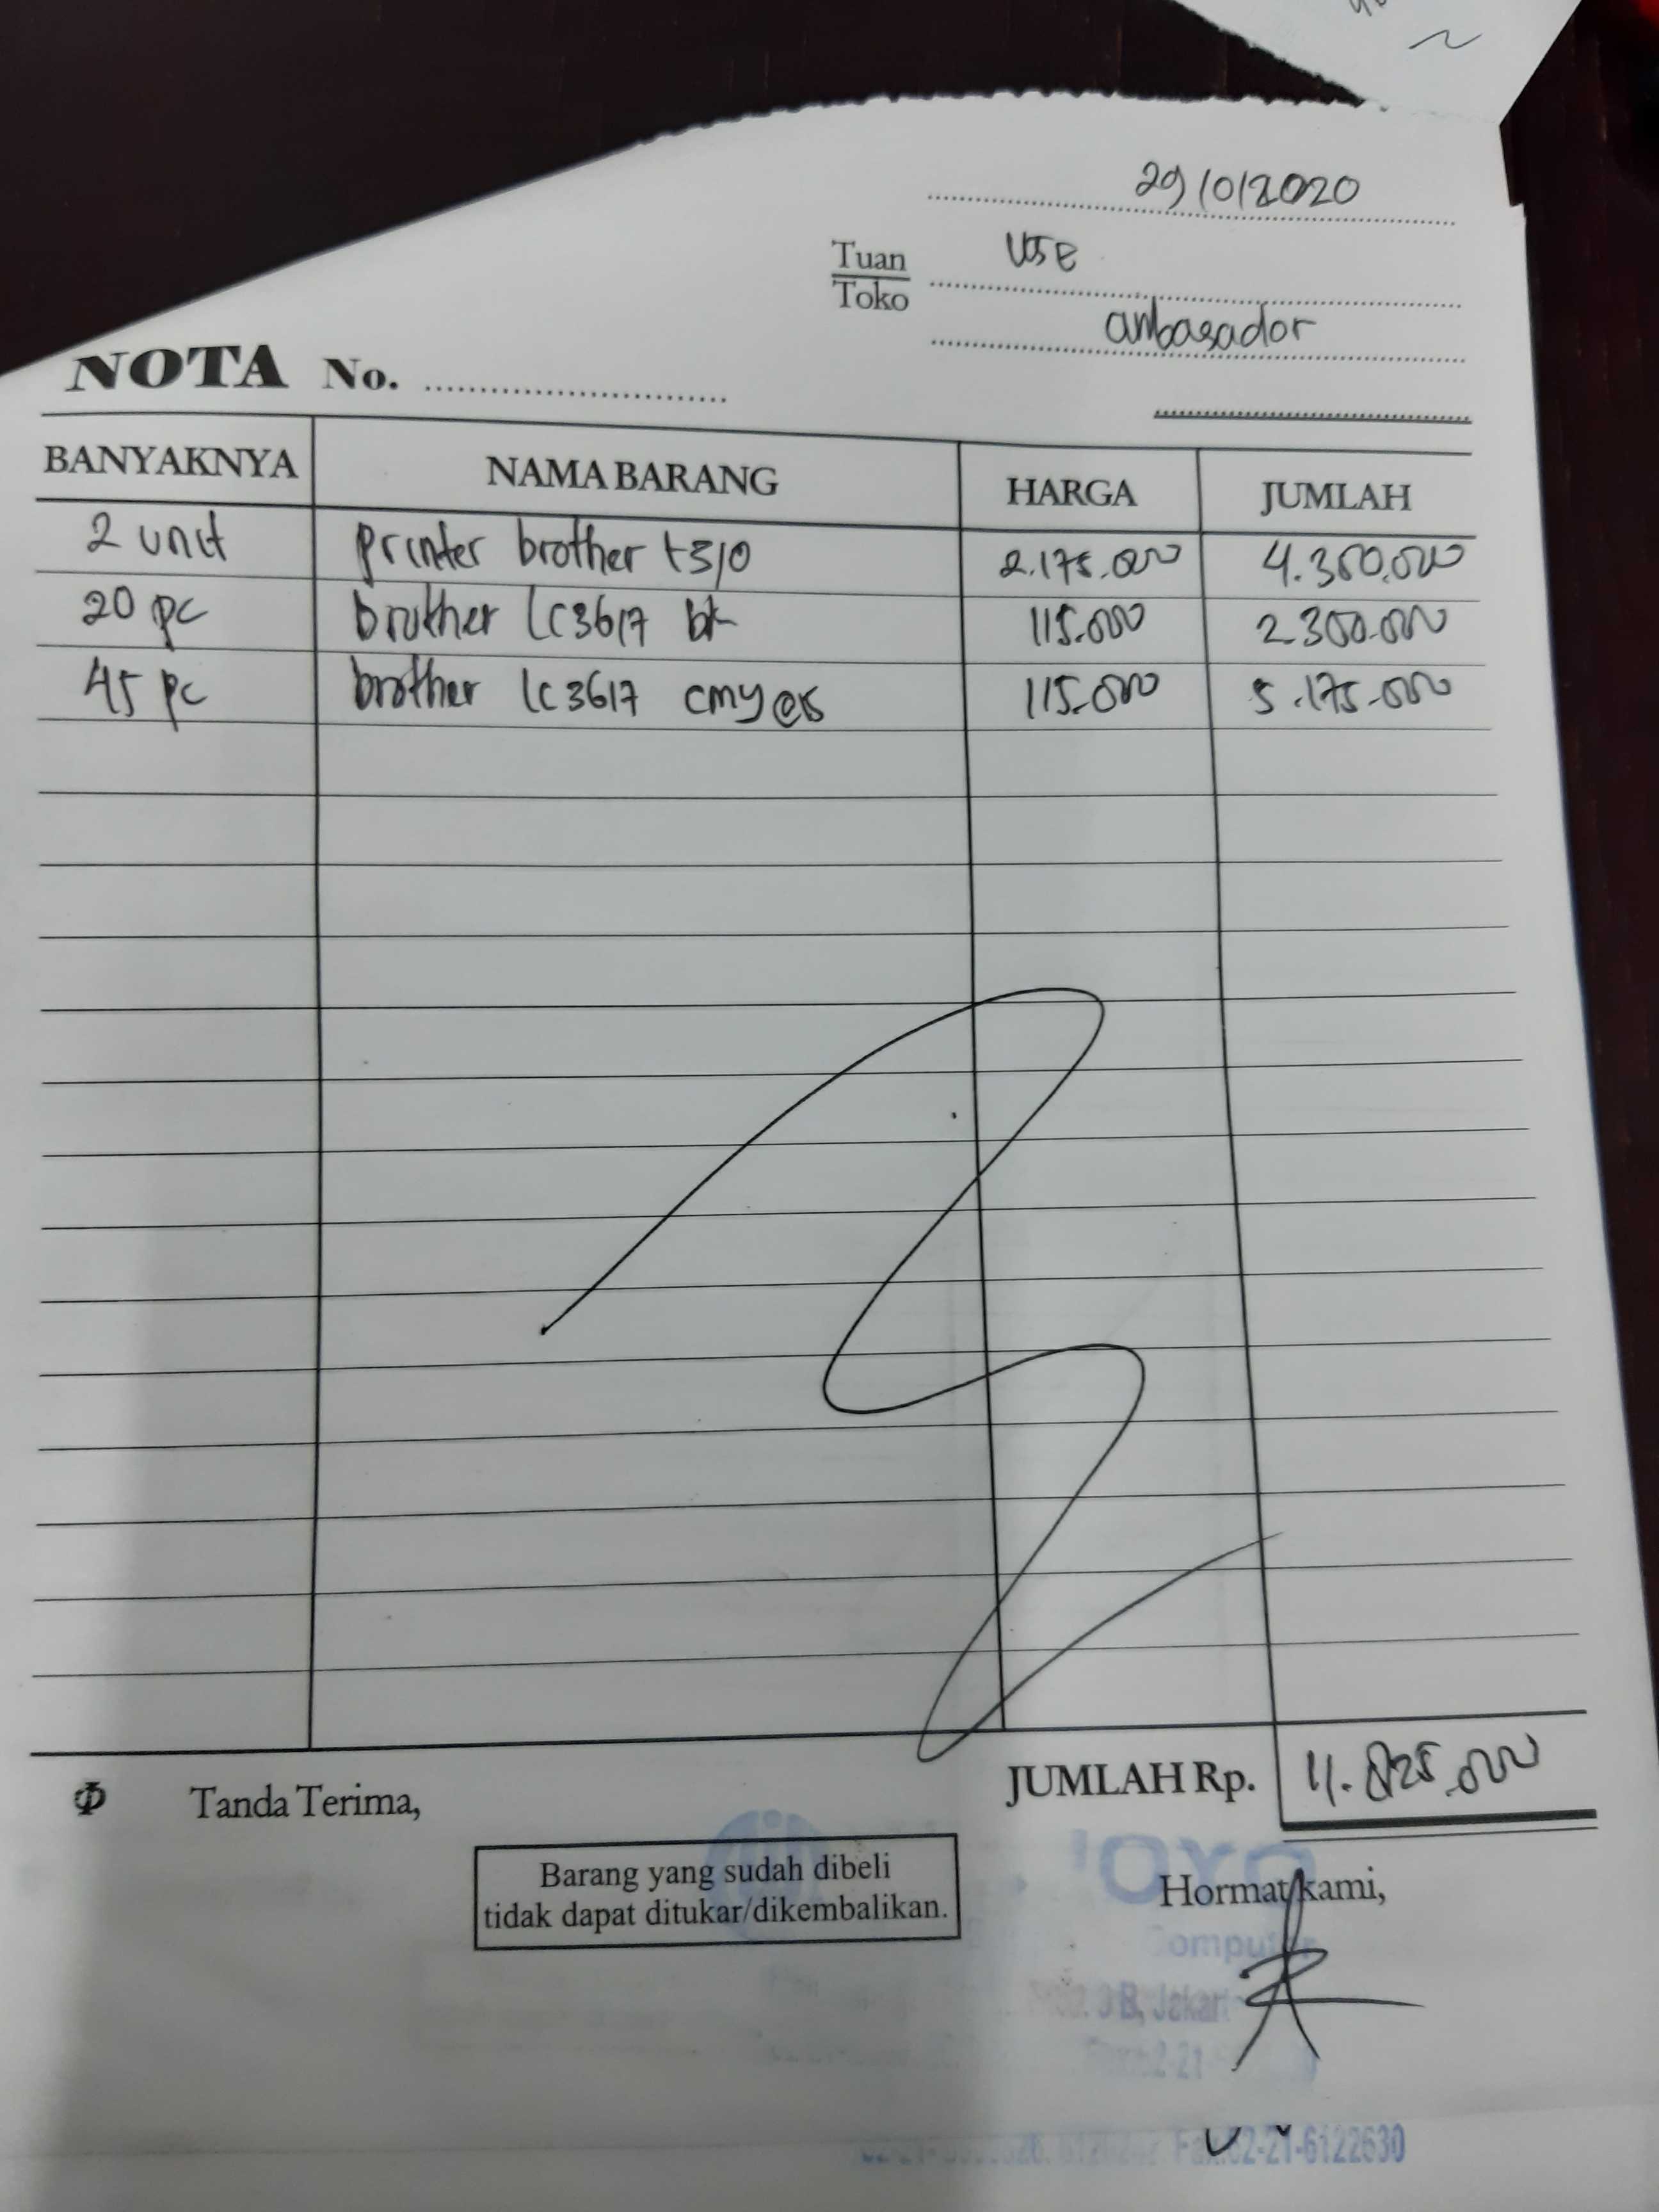 29/10/2020
Tuan
Toko
USE
ambasador
NOTA No.
BANYAKNYA NAMA BARANG HARGA JUMLAH
2 unit printer brother t310 2.175.000 4.350.000
20 pc brother lc3617 bk 115.000 2.300.000
45 pc brother lc3617 cmy @15 115.000 5.175.000
JUMLAH Rp. 11.825.000
Tanda Terima,
Barang yang sudah dibeli
tidak dapat ditukar/dikembalikan.
Hormat kami,
Computer
Fax:62-21-6122630